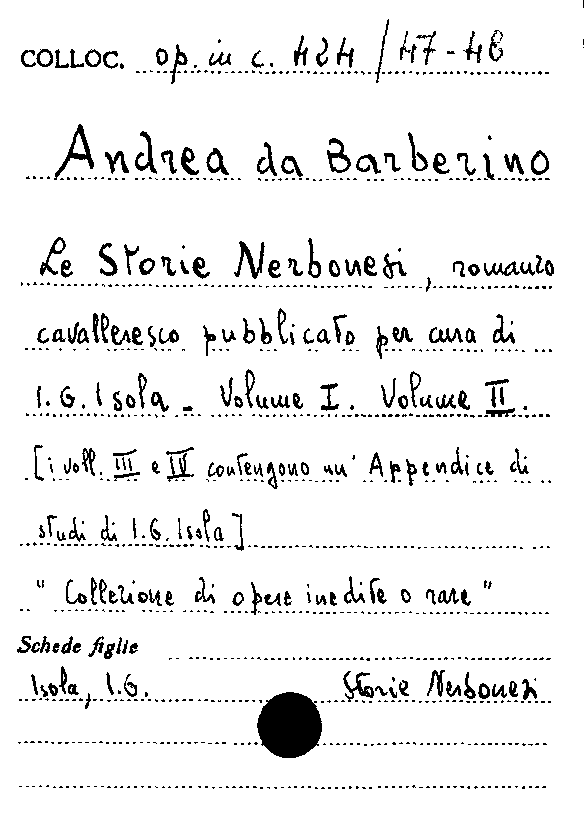 COLLOC. op. in c. 424/47-48
Andrea da Barberino
Le Storie Nerbonesi, romanzo
cavalleresco pubblicato per cura di
I.G. Isola - Volume I. Volume II.
[i voll. III e IV contengono un' Appendice di
studi di I.G. Isola]
" Collezione di opere inedite o rare "
Schede figlie
Isola, I.G. Storie Nerbonesi